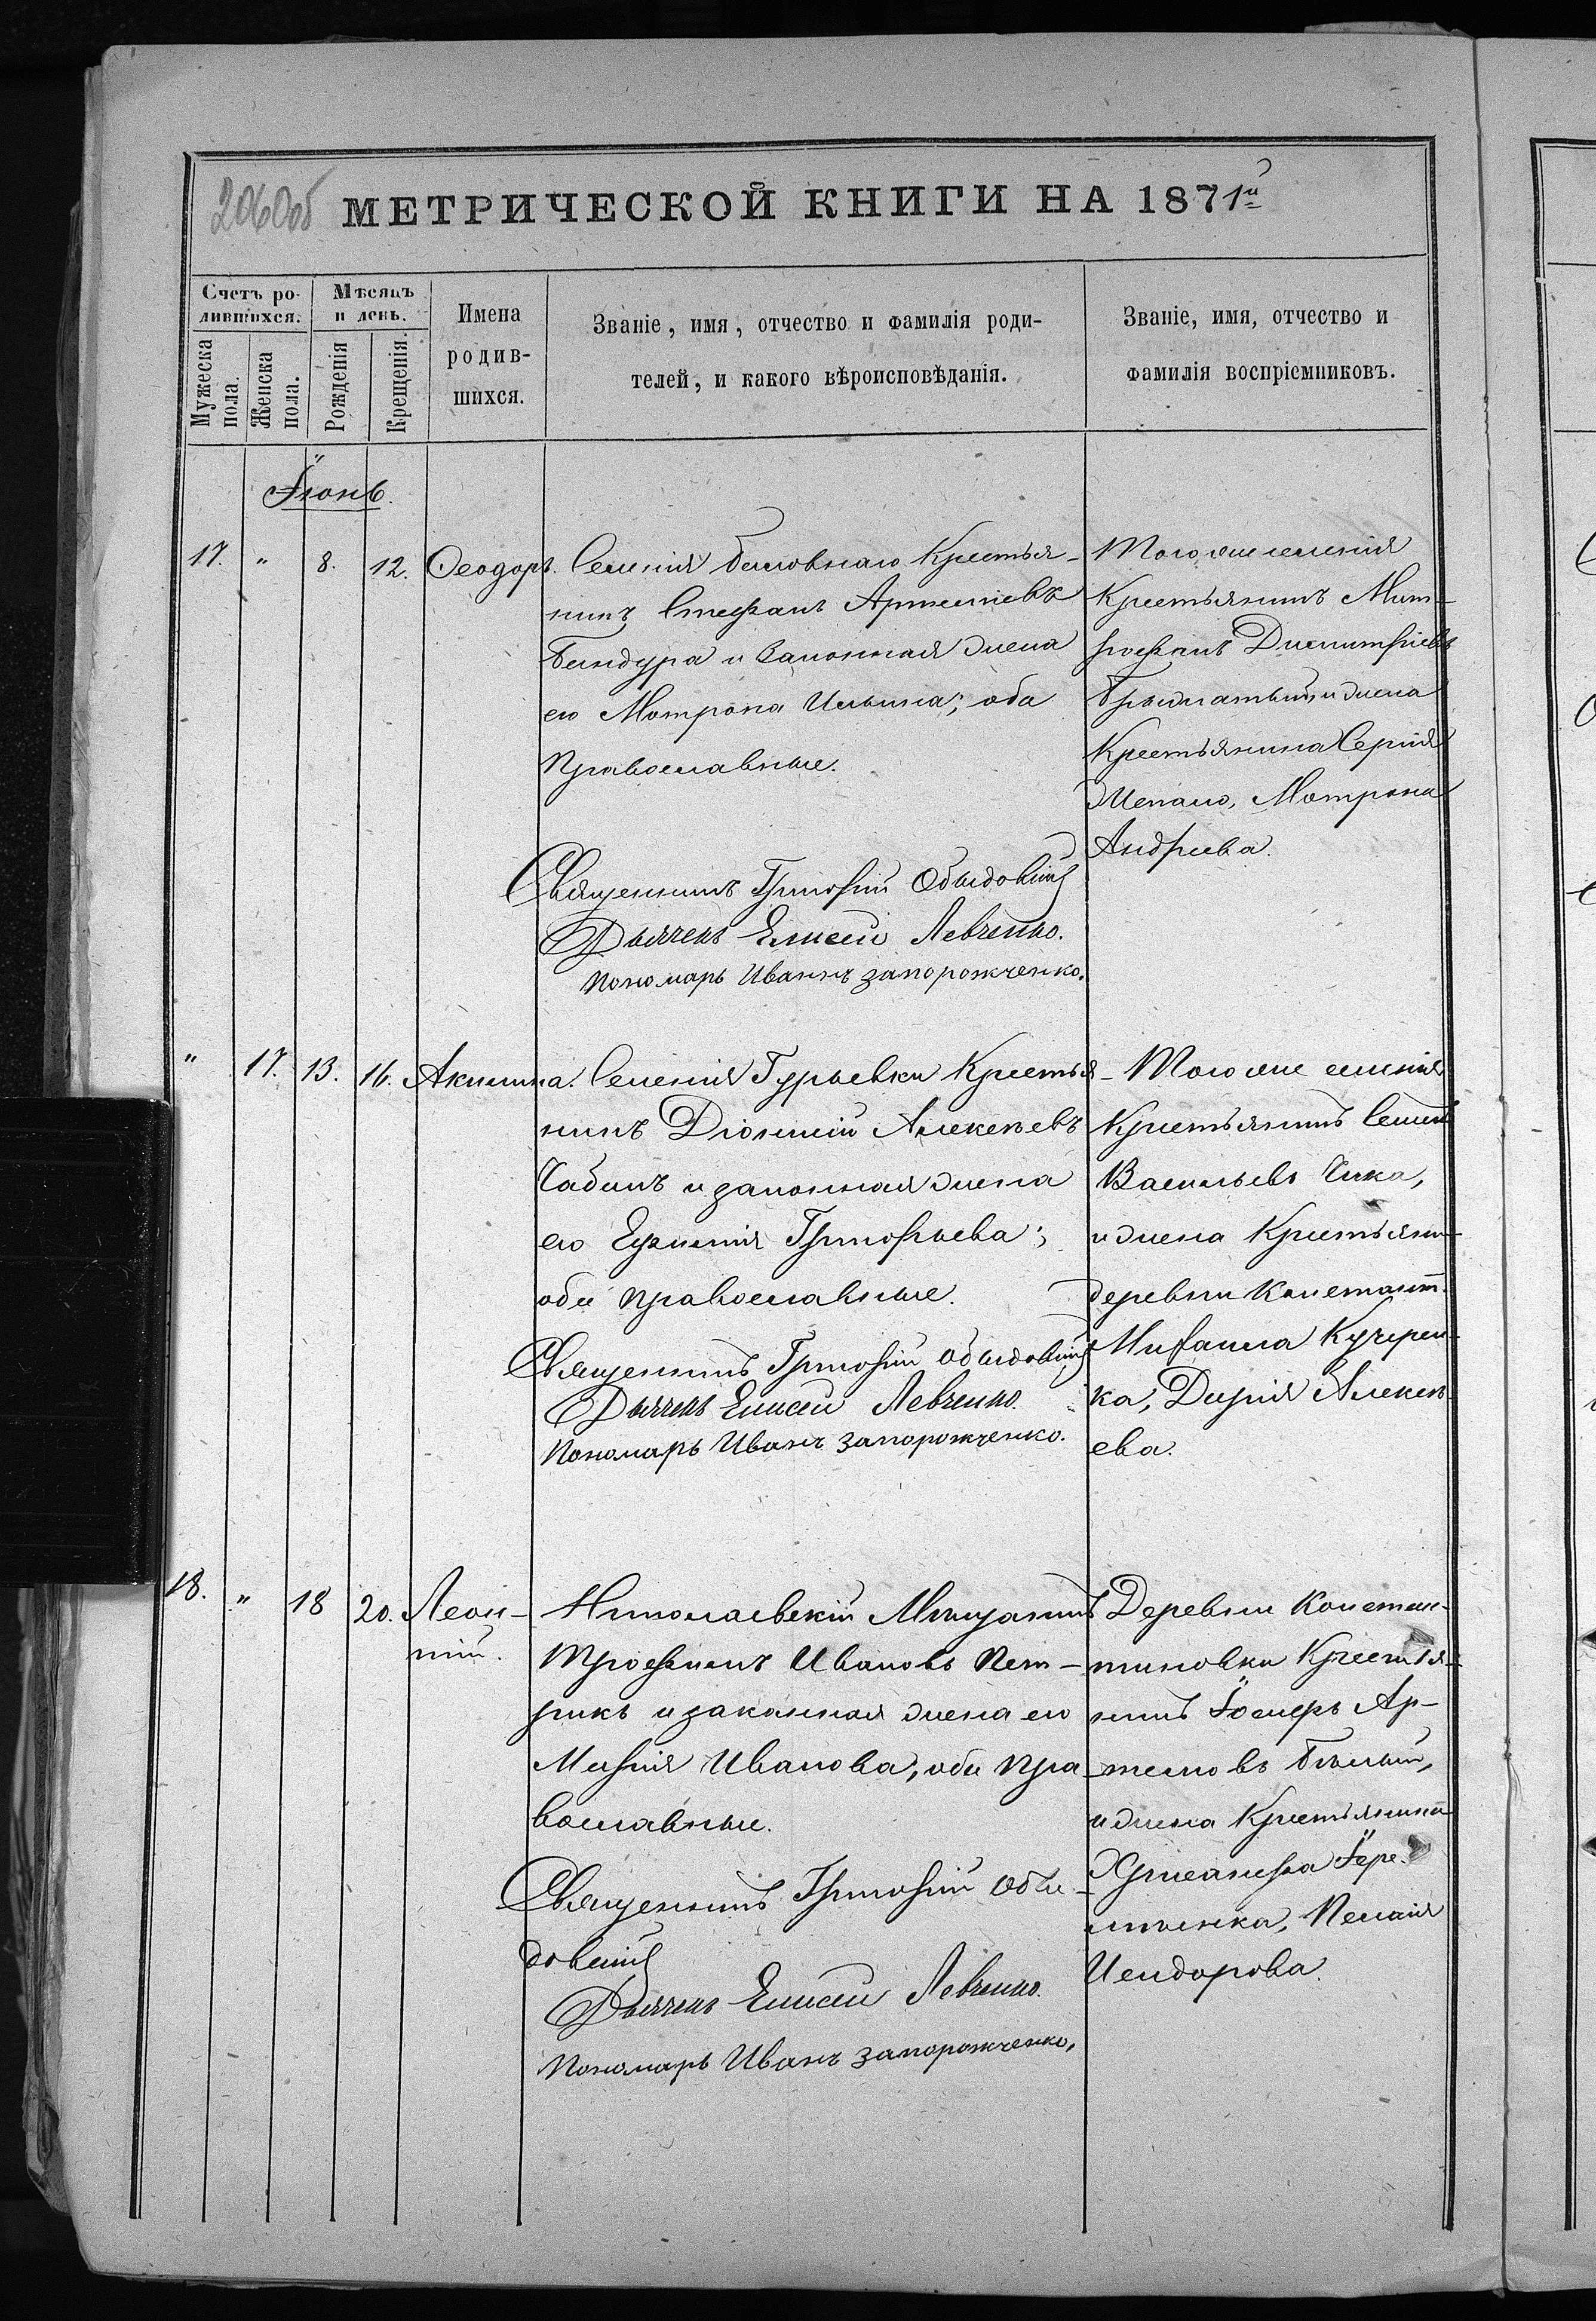 206об МЕТРИЧЕСКОЙ КНИГИ НА 1871й
Счетъ ро-
дившихся.
Мужеска
пола.
Женска
пола.
Мѣсяцъ
и день.
Рожденія
Крещенія.
Имена
родив-
шихся.
Званіе, имя, отчество и фамилія роди-
телей, и какого вѣроисповѣданія.
Званіе, имя, отчество и
фамилія воспріемниковъ.
Іюнь.
17. " 8. 12. Ѳеодоръ.
Селенія Крестья-
нинъ Стефанъ Артемьевъ
Бындура и Законная жена
его Мотрона Ильина; оба
Православные.
Священникъ Григорій
Дьячекъ Елисей Левченко.
Пономарь Иваннъ запорожченко.
Того же селенія
Крестьянинъ Мит-
рофанъ Димитріевъ
и жена
Крестьянина Сергія
Мотрона
Андреева.
" 17. 13. 16. Акилина.
Селенія Гурьевки Крестья-
нинъ Діонисій Алексѣевъ
Чабанъ и законная жена
его Евфимія Григорьева;
оба православные.
Священникъ Григорій
Дьячекъ Елисей Левченко.
Пономарь Иванъ запорожченко.
Того же селенія
Крестьянинъ Семенъ
Васильевъ Чика,
и жена Крестьяни-
деревни Констант.
Михаила Кучерен-
ка, Дарія Алексѣ-
ева.
18. " 18 20. Леон-
тій.
Николаевскій Мѣщанинъ
Трофимъ Ивановъ Пет-
рикъ и законная жена его
Марія Иванова, оба пра-
вославные.
Священникъ Григорій
Дьячекъ Елисей Левченко.
Пономарь Иванъ запорожченко,
Деревни Констан-
тиновки Крестья-
нинъ Ар-
темовъ Бѣлый,
и жена Крестьянина
Пелагія
Исидорова.